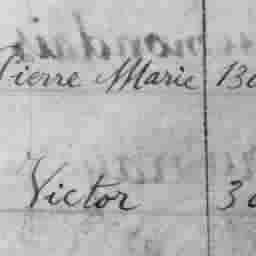 Pierre Marie 130
Victor 30